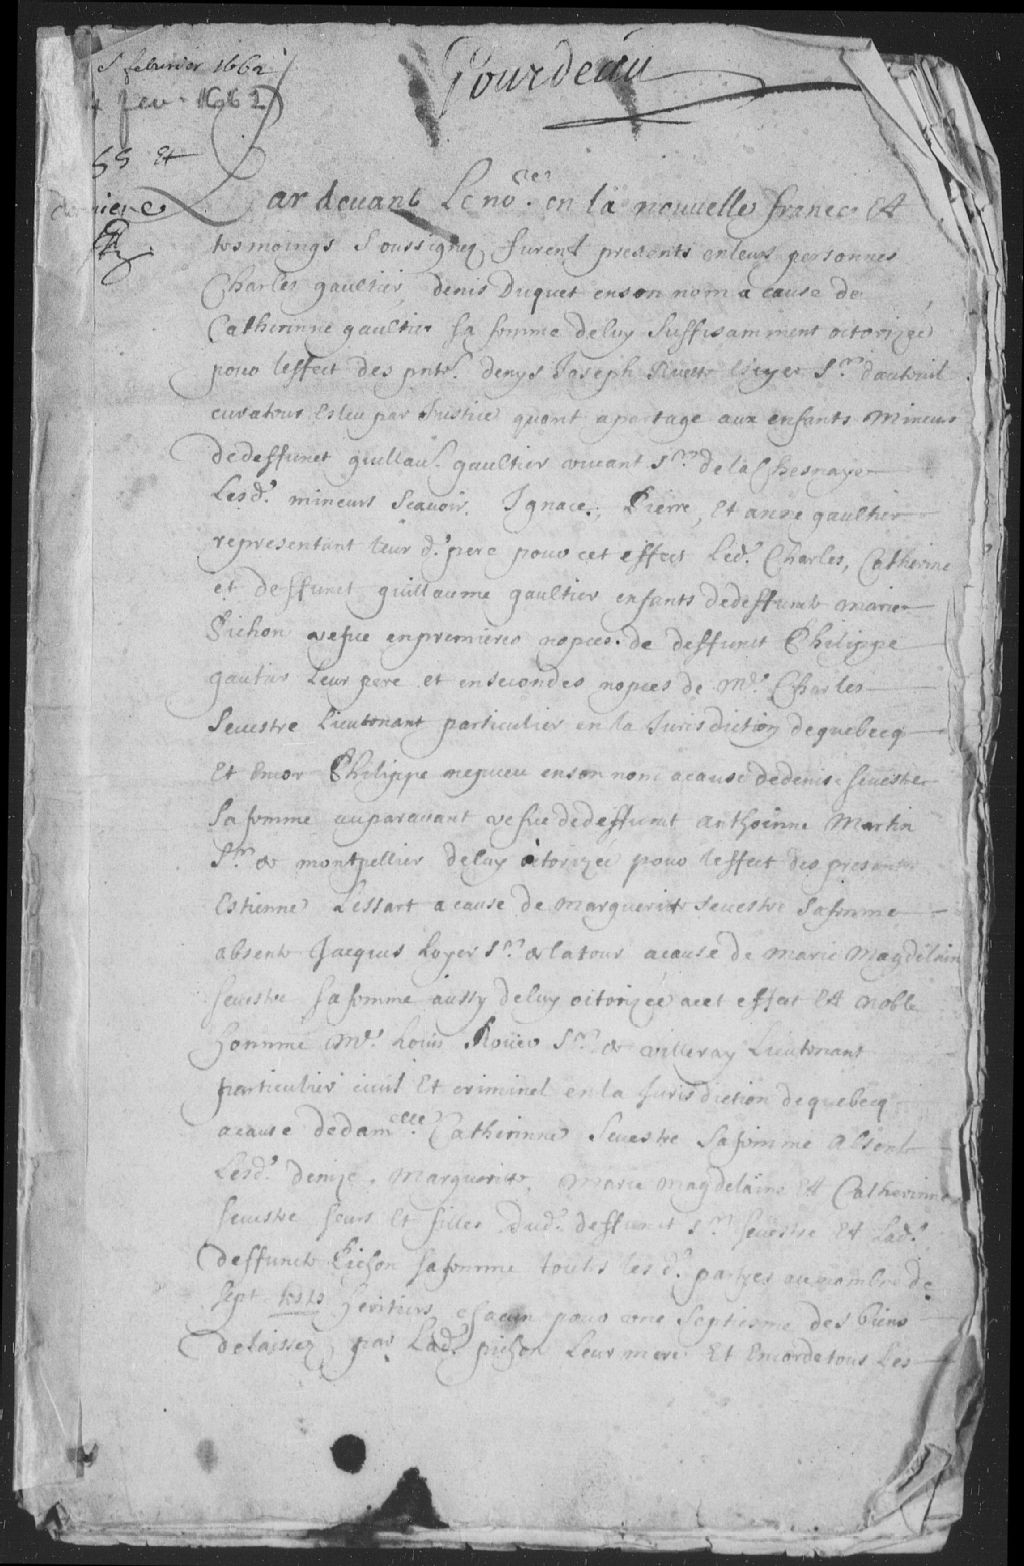 5 febvrier 1662
4 fev. 1662
Gourdeau
55 et
derniere
Par devant Le nore. en la nouvelle france Et
tesmoings Soussignez furent presents en leurs personnes
Charles gaultier, denis Duquet en son nom a cause de
Catherinne gaultier sa femme de luy suffisamment otorizée
pour leffect des pntes. denys Joseph Ruette Escuyer Sr. dauteuil
curateur Esleu par Justice quant a partage aux enfants Mineurs
de deffunct guillaue. gaultier vivant Sr. de la Chesnaye
Lesd. mineurs Scavoir, Ignace, Pierre, Et anne gaultier
representant leur d. pere pour cet effect Led. Charles, Catherine
et deffunct guillaume gaultier enfants de deffuncte marie
Pichon vefve en premieres nopces de deffunct Philippe
gautier Leur pere et en secondes nopces de Mr. Charles
Sevestre Lieutenant particulier en la Jurisdiction de quebecq
Et Encor Philippe neguveu en son nom a cause de denise sevestre
Sa femme auparavant vefve de deffunct anthoinne Martin
Sr. de montpellier de luy otorizée pour leffect des presentes
Estienne Lessart a cause de Margueritte sevestre Sa femme
absente Jacques Loyer Sr. de latour a cause de Marie Magdelaine
sevestre sa femme aussy de luy otorizée a cet effect Et Noble
homme Mr. Louis Roüer Sr. de villeray Lieutenant
particulier civil Et criminel en la Jurisdiction de quebecq
a cause de damelle. Catherinne Sevestre Sa femme absente
Lesd. denize, Margueritte, Marie magdelaine Et Catherinne
sevestre seurs Et filles dud. deffunct Sr. sevestre Et Lad.
deffuncte Pichon sa femme toutes lesd. partyes au nombre de
sept testes heritiers chacun pour une Septiesme des biens
delaissez par Lad. pichon Leur mere Et Encor de tous Les